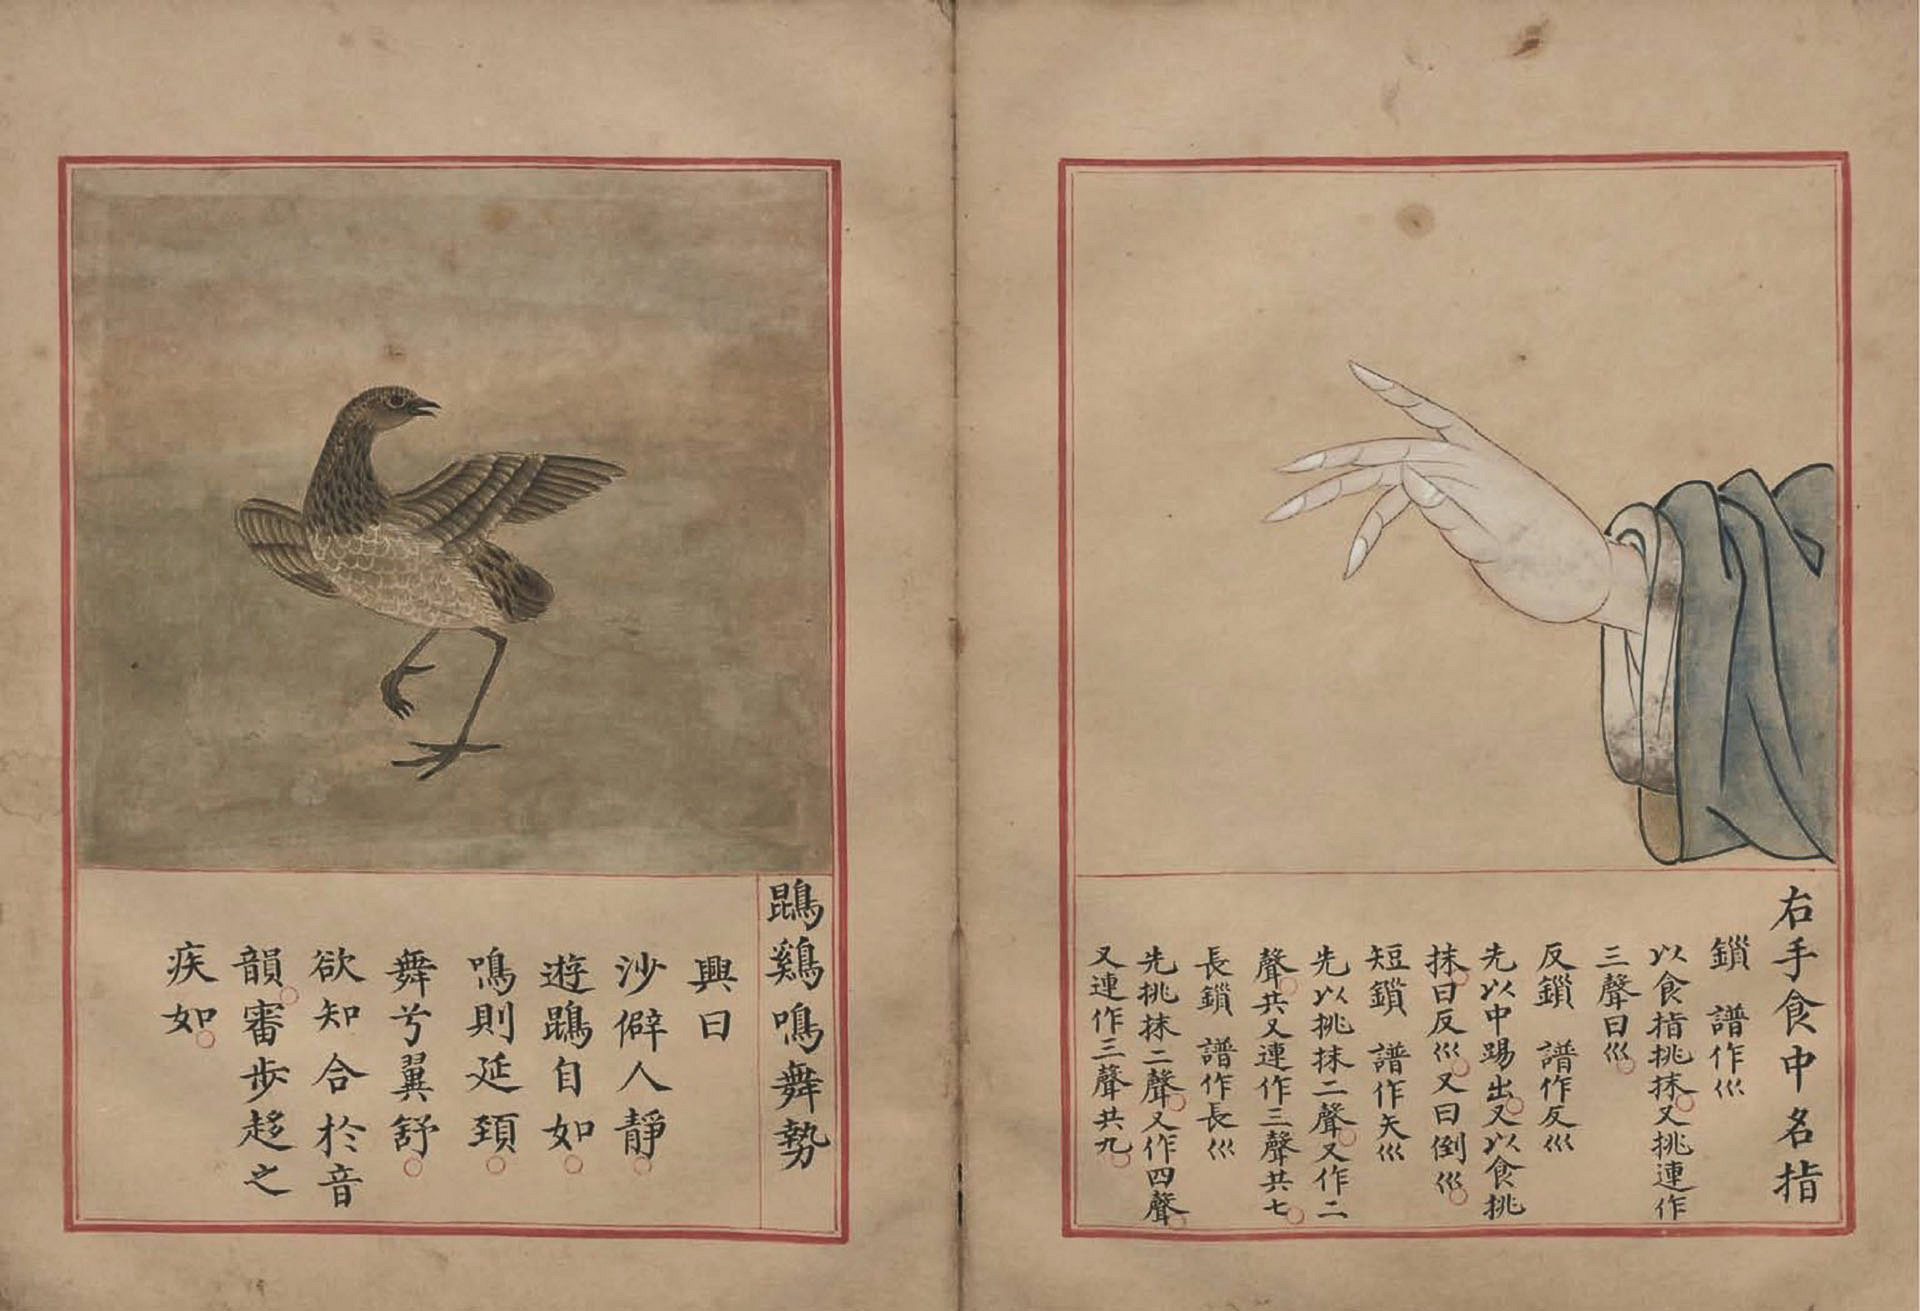 右手食中名指
鎻　譜作巛
以食指挑抹又挑連作
三聲曰巛
反鎻　譜作反巛
先以中踢出又以食挑
抹曰反巛又曰倒巛
短鎻　譜作矢巛
先以挑抹二聲又作二
聲共又連作三聲共七
長鎻　譜作長巛
先挑抹二聲又作四聲
又連作三聲共九
鵾鷄鳴舞勢
興曰
沙僻人靜
遊鵾自如
鳴則延頚
舞兮翼舒
欲知合於音
韻審步趍之
疾如